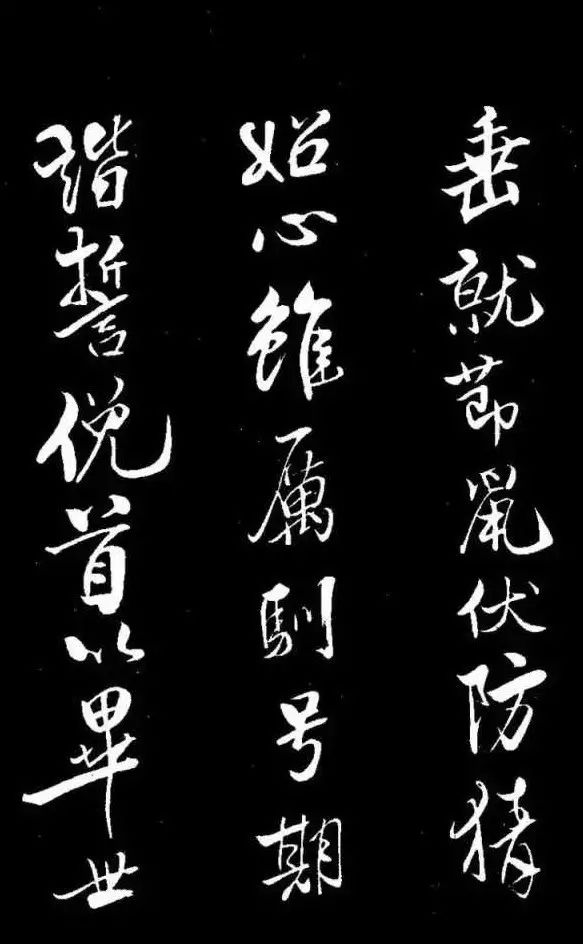 垂就節鼠伏防猜
妬心雖厲馴号期
階誓俛首以畢世